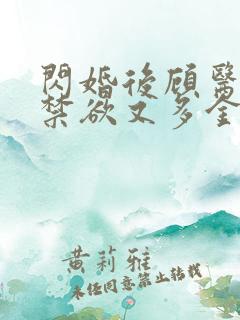 閃婚後顧醫
禁欲又多金
黄莉雅
未经同意禁止转载